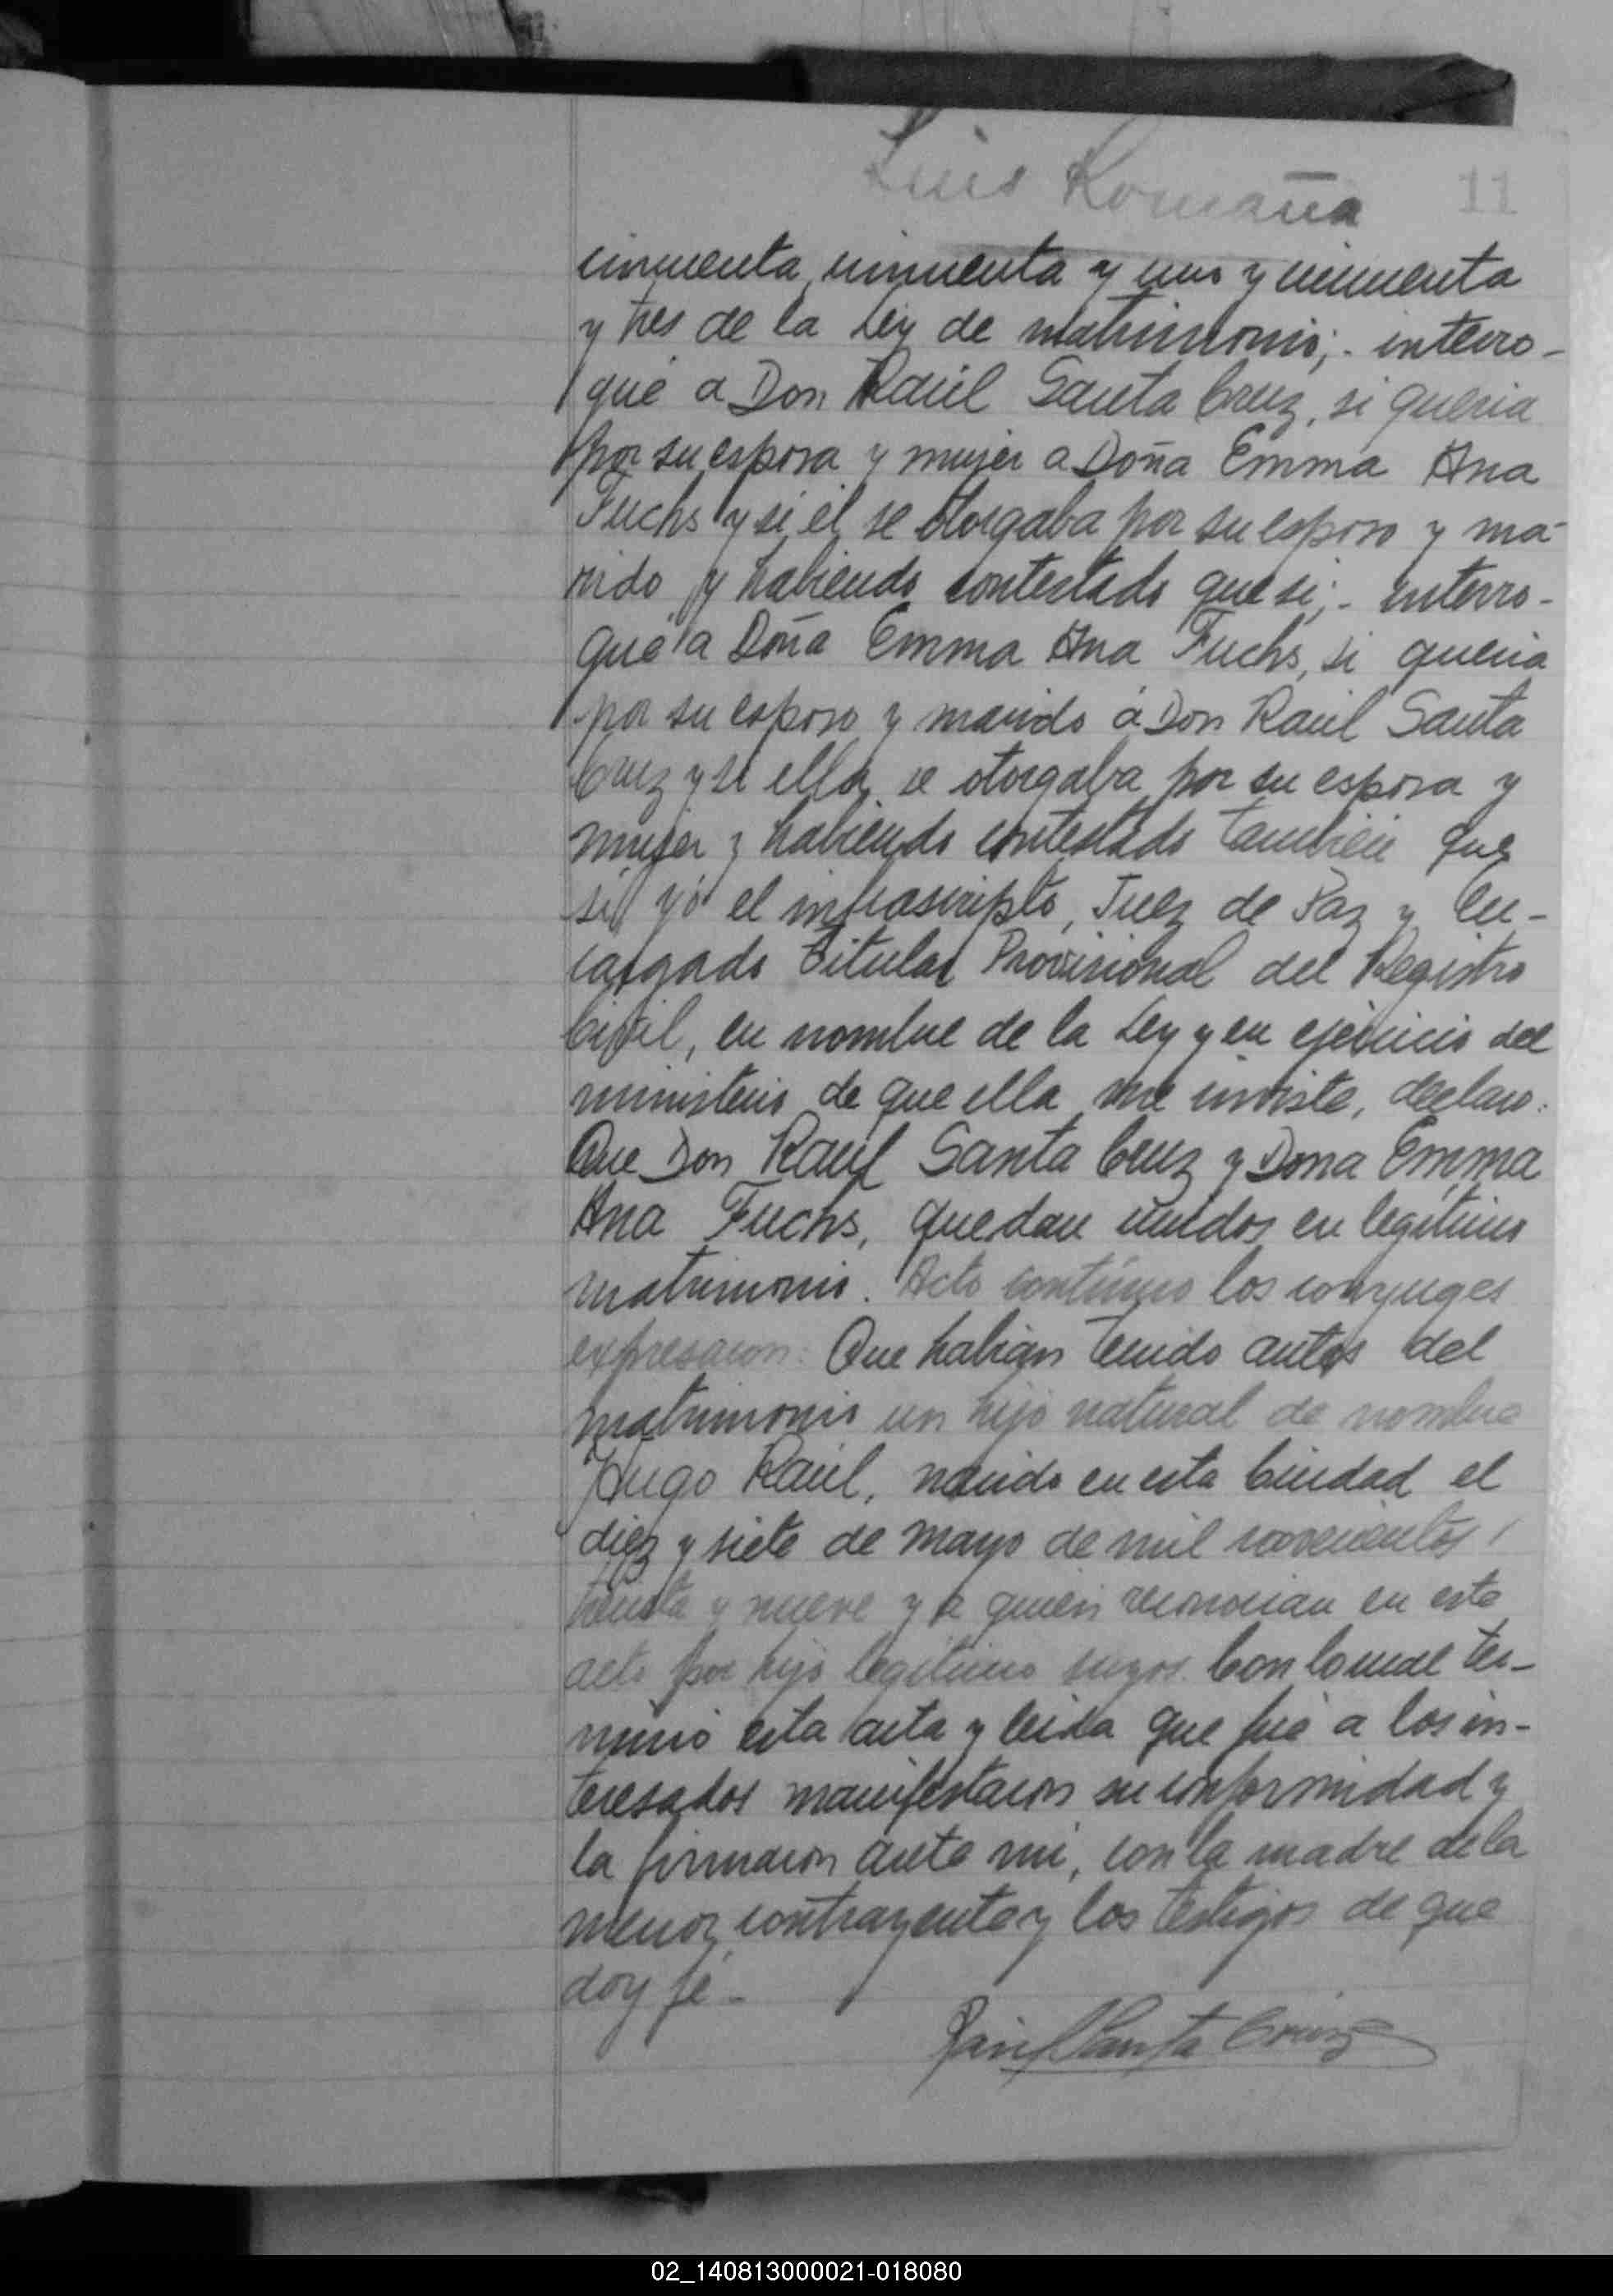 Luis Romaña 11
cincuenta, cincuenta y uno y cincuenta
y tres de la Ley de matrimonio;- interro-
gué a Don Raúl Santa Cruz, si queria
por su esposa y mujer a Doña Emma Ana
Fuchs y si él se otorgaba por su esposo y ma-
rido y habiendo contestado que si;- interro-
gué a Doña Emma Ana Fuchs, si queria
por su esposo y marido á Don Raúl Santa
Cruz y si ella se otorgaba por su esposa y
mujer y habiendo contestado también que
si yó el infrascripto, Juez de Paz y En-
cargado Titular Provisional del Registro
Civil, en nombre de la Ley y en ejercicio del
ministerio de que ella me inviste, declaro:
Que Don Raúl Santa Cruz y Dona Emma
Ana Fuchs, quedan unidos en legitimo
matrimonio. Acto contínuo los conyuges
expresaron: Que habian tenido antes del
matrimonio un hijo natural de nombre
Hugo Raúl, nacido en esta Ciudad el
diez y siete de mayo de mil novecientos
treinta y nueve y a quien reconocian en este
acto por hijo legitimo suyos. Con lo cual ter-
minó esta acta y leida que fué a los in-
teresados manifestaron su conformidad y
la firmaron ante mi, con la madre de la
menor contrayente y los testigos de que
doy fé -
Raúl Santa Cruz
02_140813000021-018080